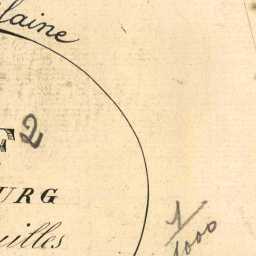 laine
F 2
URG
uilles
1/1000